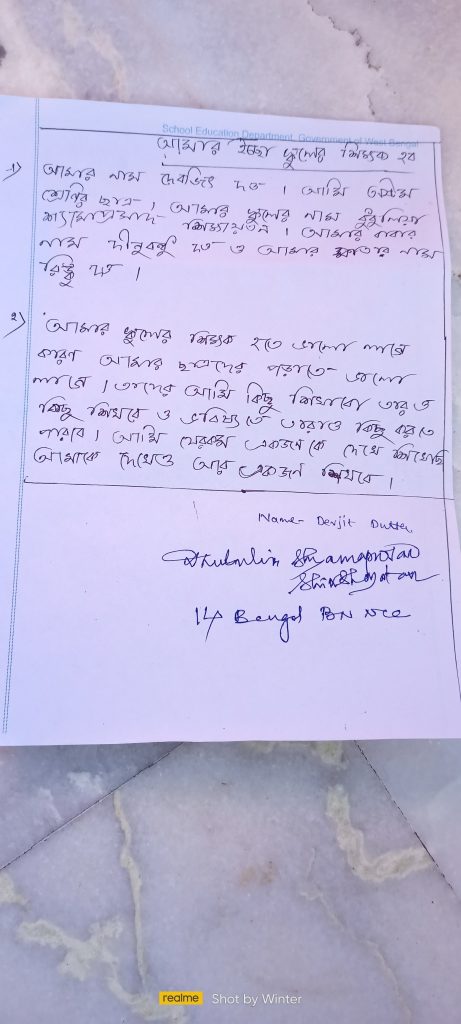 School Education Department, Government of West Bengal
আমার ইচ্ছা স্কুলের শিক্ষক হব
১) আমার নাম দেবজিৎ দত্ত । আমি অষ্টম
শ্রেণির ছাত্র । আমার স্কুলের নাম ধুবুলিয়া
শ্যামাপ্রসাদ শিক্ষায়তন । আমার বাবার
নাম দীনবন্ধু দত্ত ও আমার মাতার নাম
রিঙ্কু দত্ত ।
২) আমার স্কুলের শিক্ষক হতে ভালো লাগে
কারণ আমার ছাত্রদের পড়াতে ভালো
লাগে । তাদের আমি কিছু শিখাবো তারও
কিছু শিখবে ও ভবিষ্যতে তারাও কিছু করতে
পারবে । আমি যেরকম একজনকে দেখে শিখেছি
আমাকে দেখেও আর একজন শিখবে ।
Name- Devjit Dutta.
Dhubulia Shyamaprasad
Shikshayatan
14 Bengal BN NCC
realme Shot by Winter